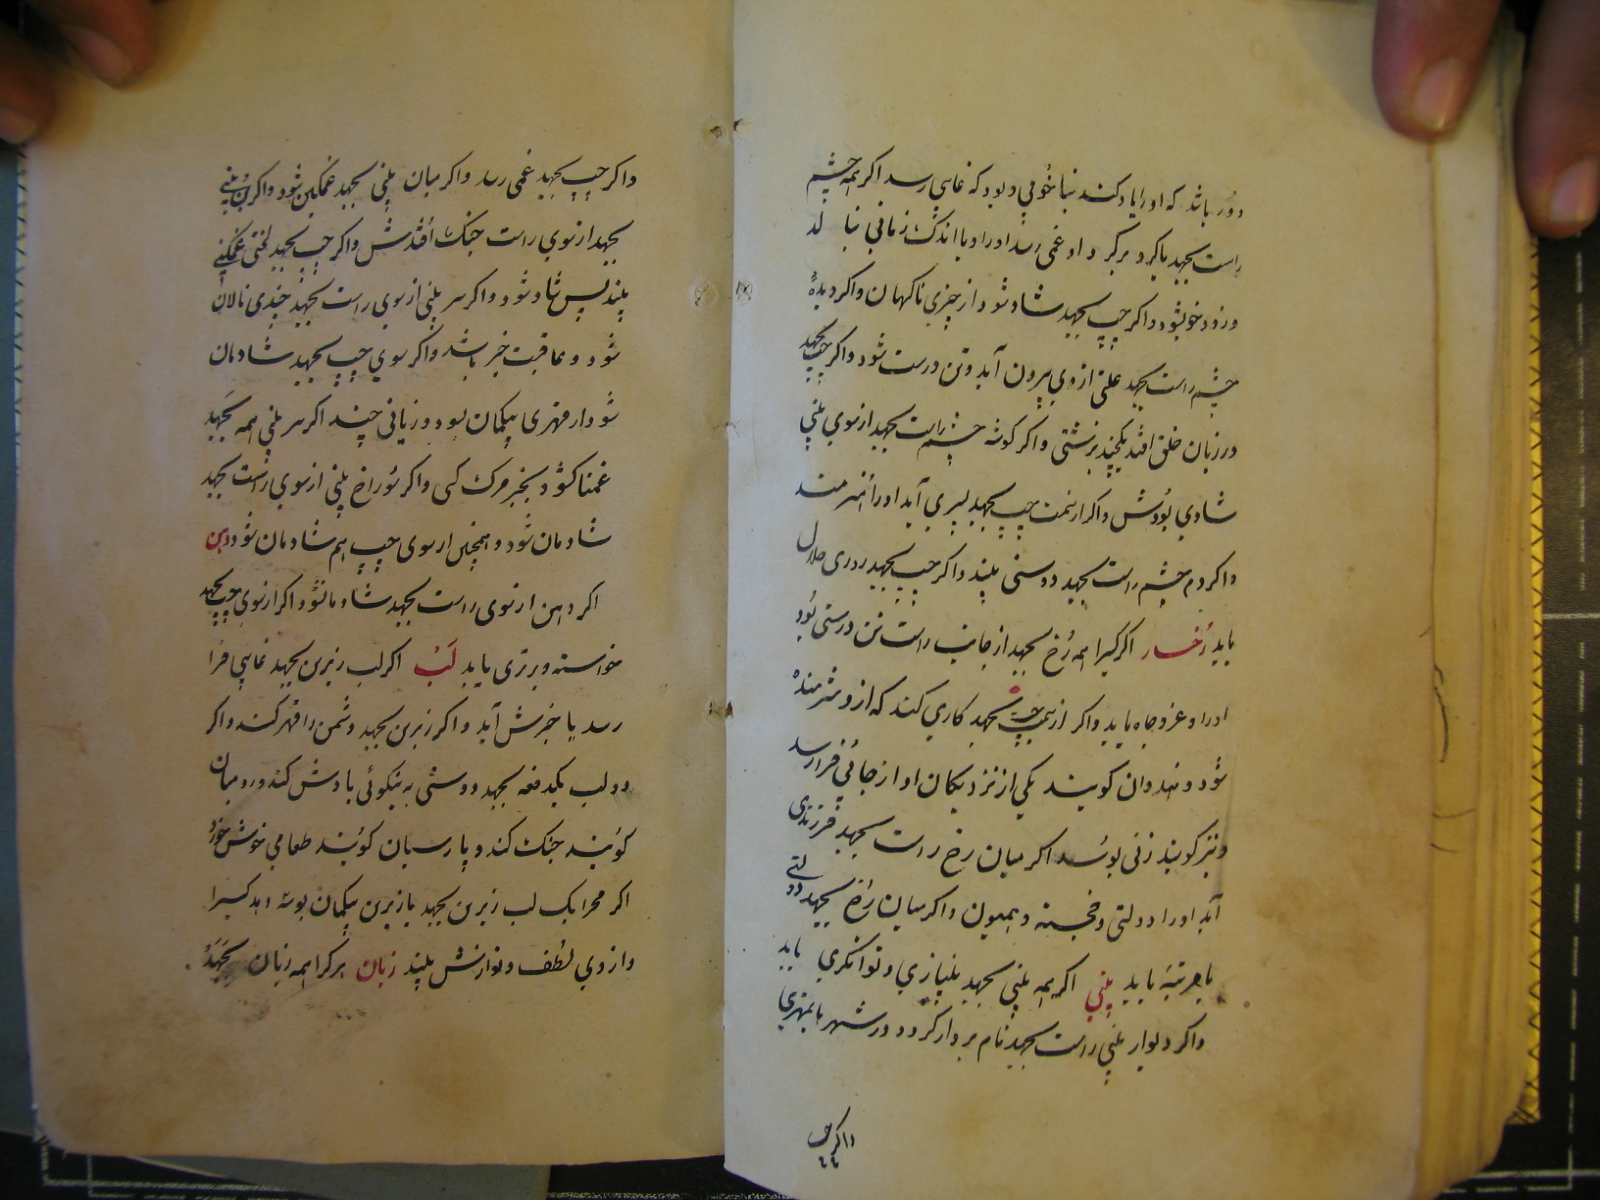 دور باشد که او را یاد کند نبا خوبی و بود که غایبی رسد اکر همه چشم
راست بجهد باکرد برکرد او غمی رسد او را و با اندک زمانی نبا لد
و زود خوبشود و اکر چپ بجهد شاد شود از چیزی ناکهان و اکر دیدهٔ
چشم راست بجهد علتی از وی بیرون آید و تن درست شود و اکر چپ بجهد
در زبان خلق افتد یکچند بزشتی و اکر کوشه چشم راست بجهد از سوی بینی
شادی بودش و اکر از سمت چپ بجهد پسری آید او را هنرمند
و اکر دم چشم راست بجهد دوستی بیند و اکر چپ بجهد روزی حلال
یابد رخسار اکر کیرا همه رخ بجهد از جانب راست تن درستی بود
او را و عز و جاه یابد و اکر از سمت چپ بجهد کاری کند که از و شرمنده
شود و هندوان کویند یکی از نزدیکان او از جائی فرا رسد
و نیز کویند زنی بوسد اکر میان رخ راست بجهد فرزندی
آید او را دولتی و خجسته و همیون و اکر میان رخ بجهد دولتی
با مرتبه یابد بینی اکر همه بینی بجهد بینیازی و توانکری یابد
و اکر دیوار بینی راست بجهد نام بردار کردد در شهر با بمهتری
و اکر چپ
و اکر چپ بجهد غمی رسد و اکر میان بینی بجهد غمکین شود و اکر بن بینی
بجهد از سوی راست جنک افتدش و اکر چپ بجهد لختی غمکینی
بیند پس شاد شود و اکر سر بینی از سوی راست بجهد چندی نالان
شود و عاقبت خیر باشد و اکر سوی چپ بجهد شادمان
شود از مهتری بیکمان بود و زیانی چند اکر سر بینی همه بجهد
غمناک شود بخبر مرک کسی و اکر سوراخ بینی از سوی راست بجهد
شادمان شود و همچنین از سوی چپ هم شادمان شود دهن
اکر دهن از سوی راست بجهد شادمانشود و اکر از سوی چپ بجهد
خواسته و برتری یابد لب اکر لب زبرین بجهد غایبی فرا
رسد یا خبرش آید و اکر زیرین بجهد دشمن را قهر کند و اکر
دو لب بیکدفعه بجهد دوستی به نیکوئی یادش کند و رومیان
کویند جنک کند و پارسیان کویند طعامی خوش خورد
اکر یک لب زبرین بجهد یا زیرین بیکمان بوسه دهد کسیرا
و از وی لطف و نوازش بیند زبان هر کرا همه زبان بجهد